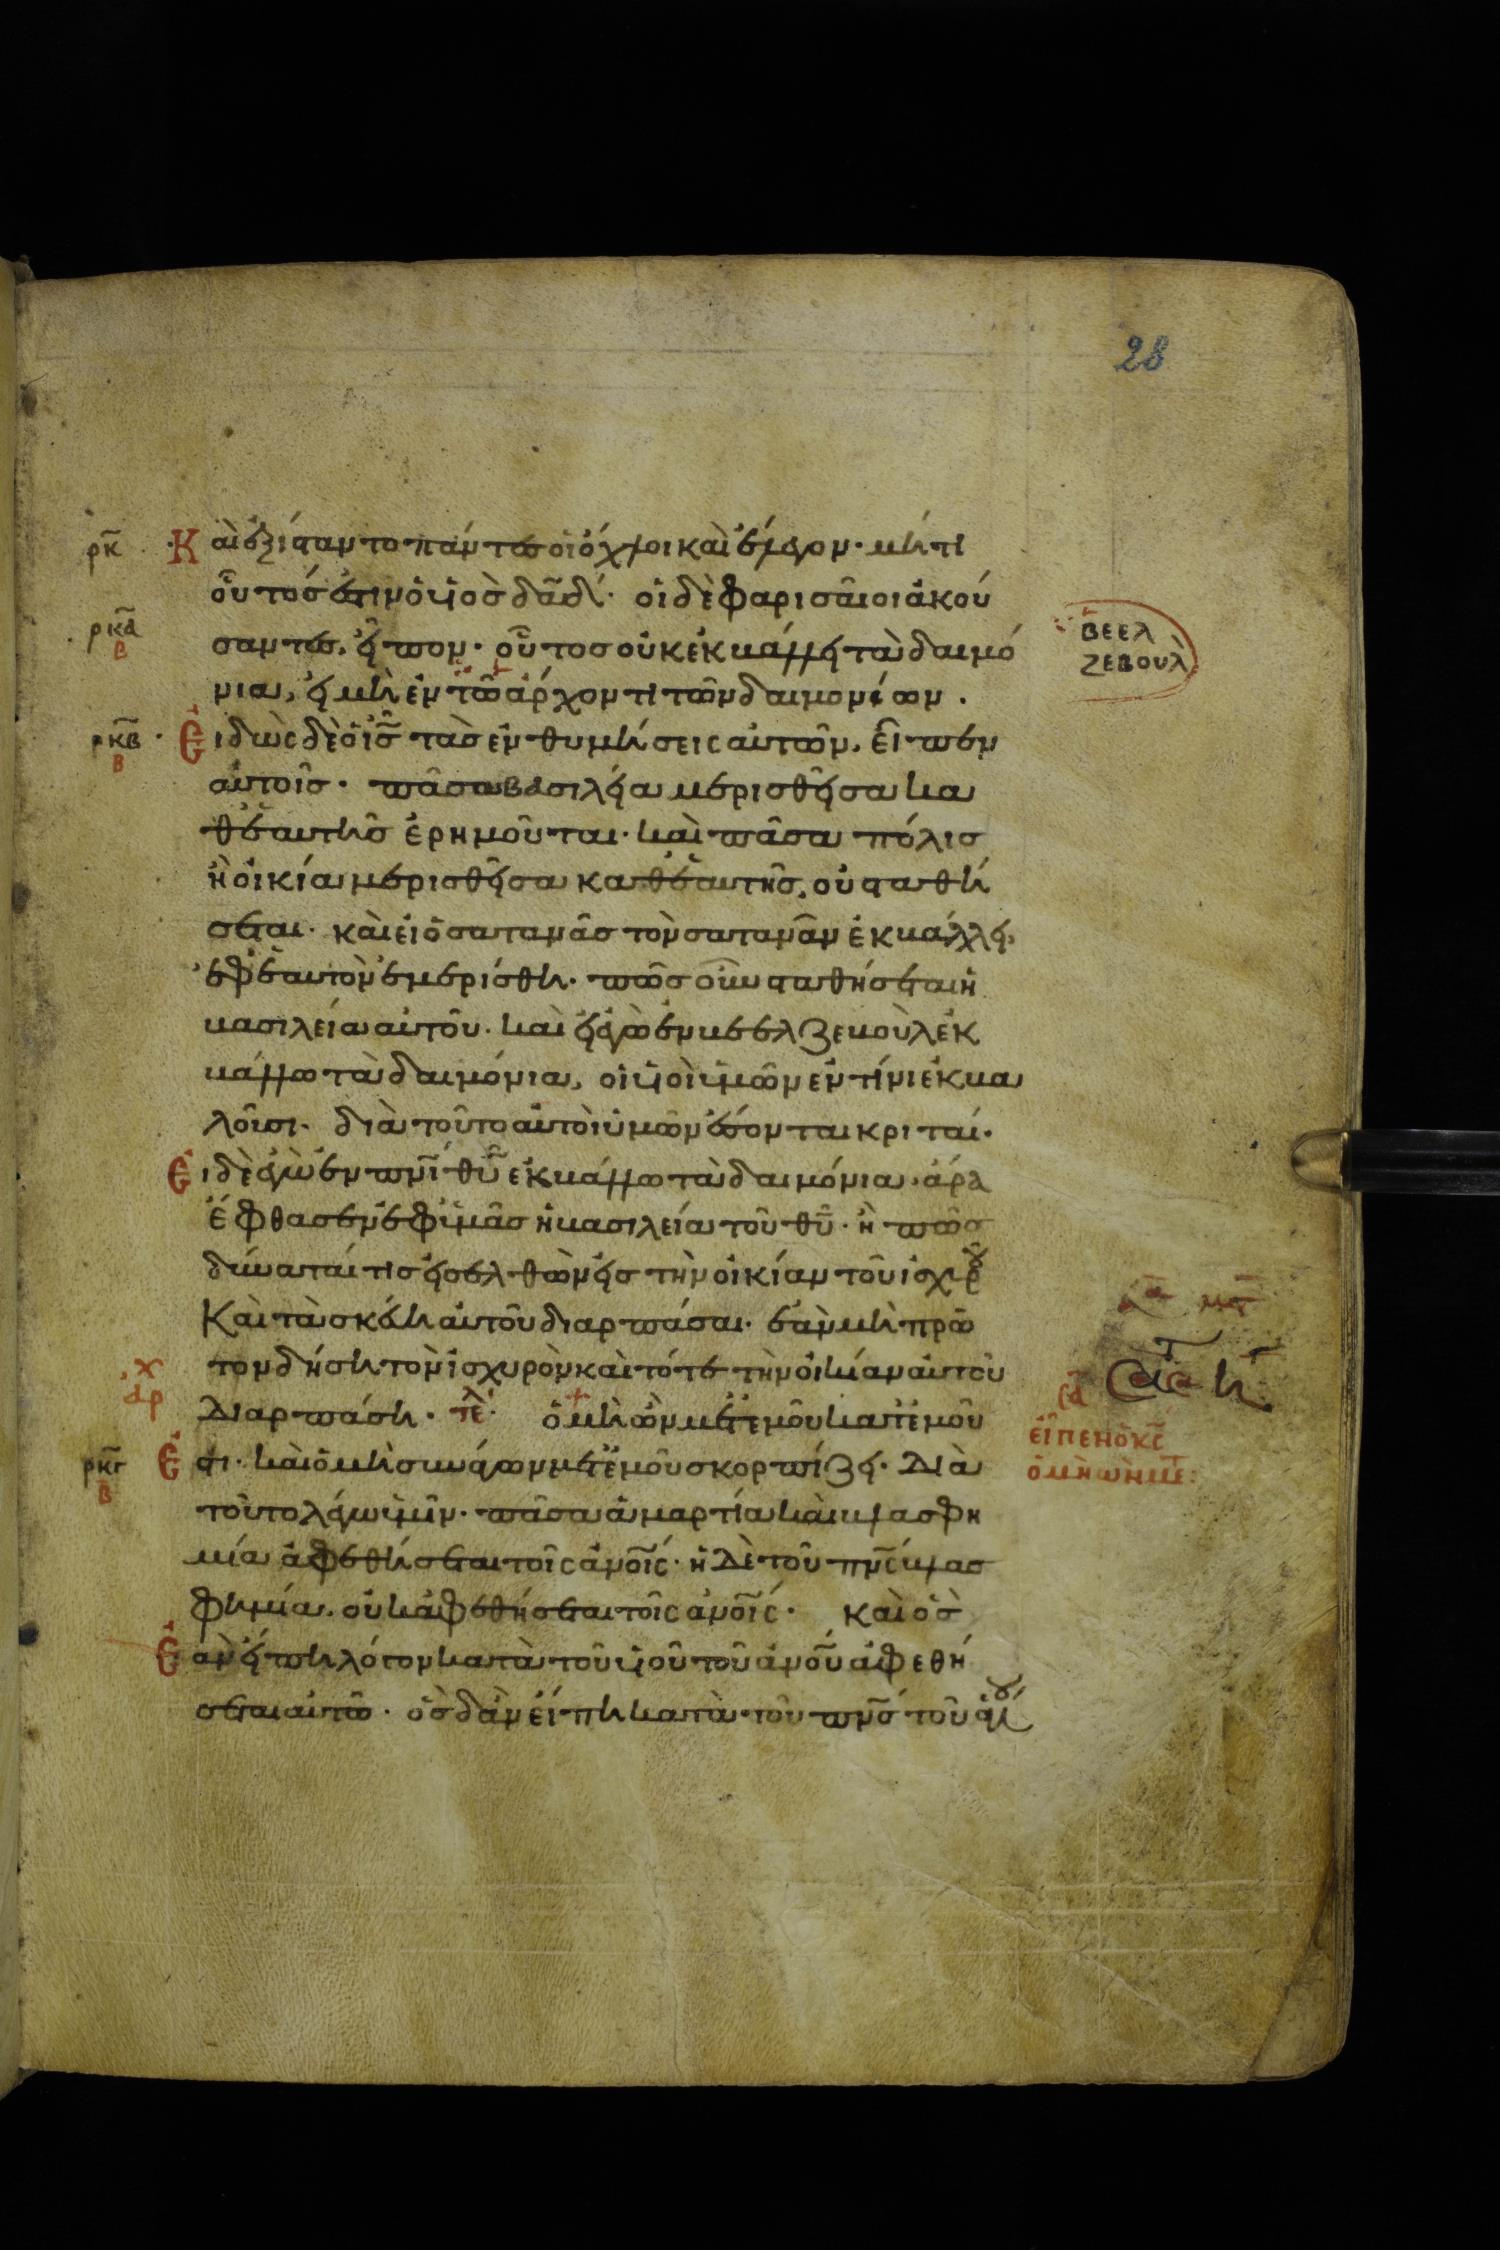 28
ρκ
Καὶ ἐξίσταντο πάντες οἱ ὄχλοι καὶ ἔλεγον· μήτι
οὗτός ἐστιν ὁ υἱὸς δα̅δ· οἱ δὲ φαρισαῖοι ἀκού
ρκα
β
σαντες, εἶπον· οὗτος οὐκ ἐκβάλλει τὰ δαιμό
βεελ
ζεβουλ
νια, εἰ μὴ ἐν τῶ ἄρχοντι τῶν δαιμονίων.
ρκβ
β
Εἰδὼς δὲ ὁ ι̅ς̅ τὰς ἐνθυμήσεις αὐτῶν, εἶπεν
αὐτοῖς· πᾶσα βασιλεία μερισθεῖσα κα
θ' ἑαυτῆς ἐρημοῦται· καὶ πᾶσα πόλις
ἢ οἰκία μερισθεῖσα καθ' ἑαυτῆς, οὐ σταθή
σεται· καὶ εἰ ὁ σατανᾶς τὸν σατανᾶν ἐκβάλλει,
ἐφ' ἑαυτὸν ἐμερίσθη· πῶς οὖν σταθήσεται ἡ
βασιλεία αὐτοῦ· καὶ εἰ ἐγὼ ἐν βεελζεβοὺλ ἐκ
βάλλω τὰ δαιμόνια, οἱ υἱοὶ ὑμῶν ἐν τίνι ἐκβα
λοῦσι· διὰ τοῦτο αὐτοὶ ὑμῶν ἔσονται κριταί·
Εἰ δὲ ἐγὼ ἐν π̅ν̅ι̅ θ̅υ̅ ἐκβάλλω τὰ δαιμόνια· ἄρα
ἔφθασεν ἐφ' ὑμᾶς ἡ βασιλεία τοῦ θ̅υ̅· ἢ πῶς
δύναταί τις εἰσελθὼν εἰς τὴν οἰκίαν τοῦ ἰσχυρου
Καὶ τὰ σκεύη αὐτοῦ διαρπάσαι· ἐὰν μὴ πρῶ
τον δήση τὸν ἰσχυρὸν καὶ τότε τὴν οἰκίαν αὐτοῦ
διαρπάση· τελ ὁ μὴ ὢν μετ' ἐμοῦ κατ' ἐμοῦ
εἶπεν ὁ κ̅ς̅
ὁ μὴ ὢν με
ρκγ
β
Ἐστι· καὶ ὁ μὴ συνάγων μετ' ἐμοῦ σκορπίζει· Διὰ
τοῦτο λέγω ὑμῖν· πᾶσα ἁμαρτία καὶ βλασφη
μία ἀφεθήσεται τοῖς ἀν̅οι̅ς· ἡ δὲ τοῦ π̅ν̅ς̅ βλασ
φημία, οὐκ ἀφεθήσεται τοῖς ἀν̅οι̅ς· καὶ ὃς
Ἐὰν εἴπη λόγον κατὰ τοῦ υἱοῦ τοῦ ἀν̅ου̅ ἀφεθή
σεται αὐτῶ· ὃς δ' ἂν εἴπη κατὰ τοῦ π̅ν̅ς̅ τοῦ ἁγίου